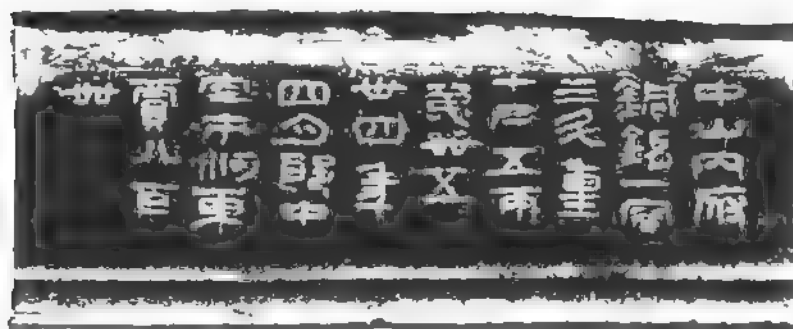 中山內府
銅鋗一容
三斗重
七斤五兩
第卌五
卅四年
四月郎中
定市河東
賈八百
卌